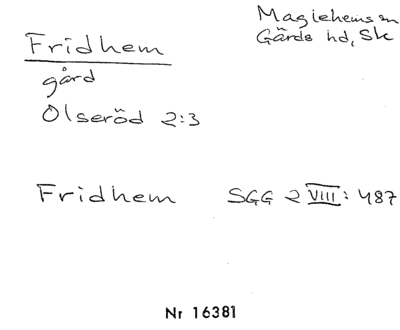 Fridhem
gård
Olseröd 2:3
Maglehems sn
Gärds hd, Sk
Fridhem SGG 2 VIII: 487
Nr 16381